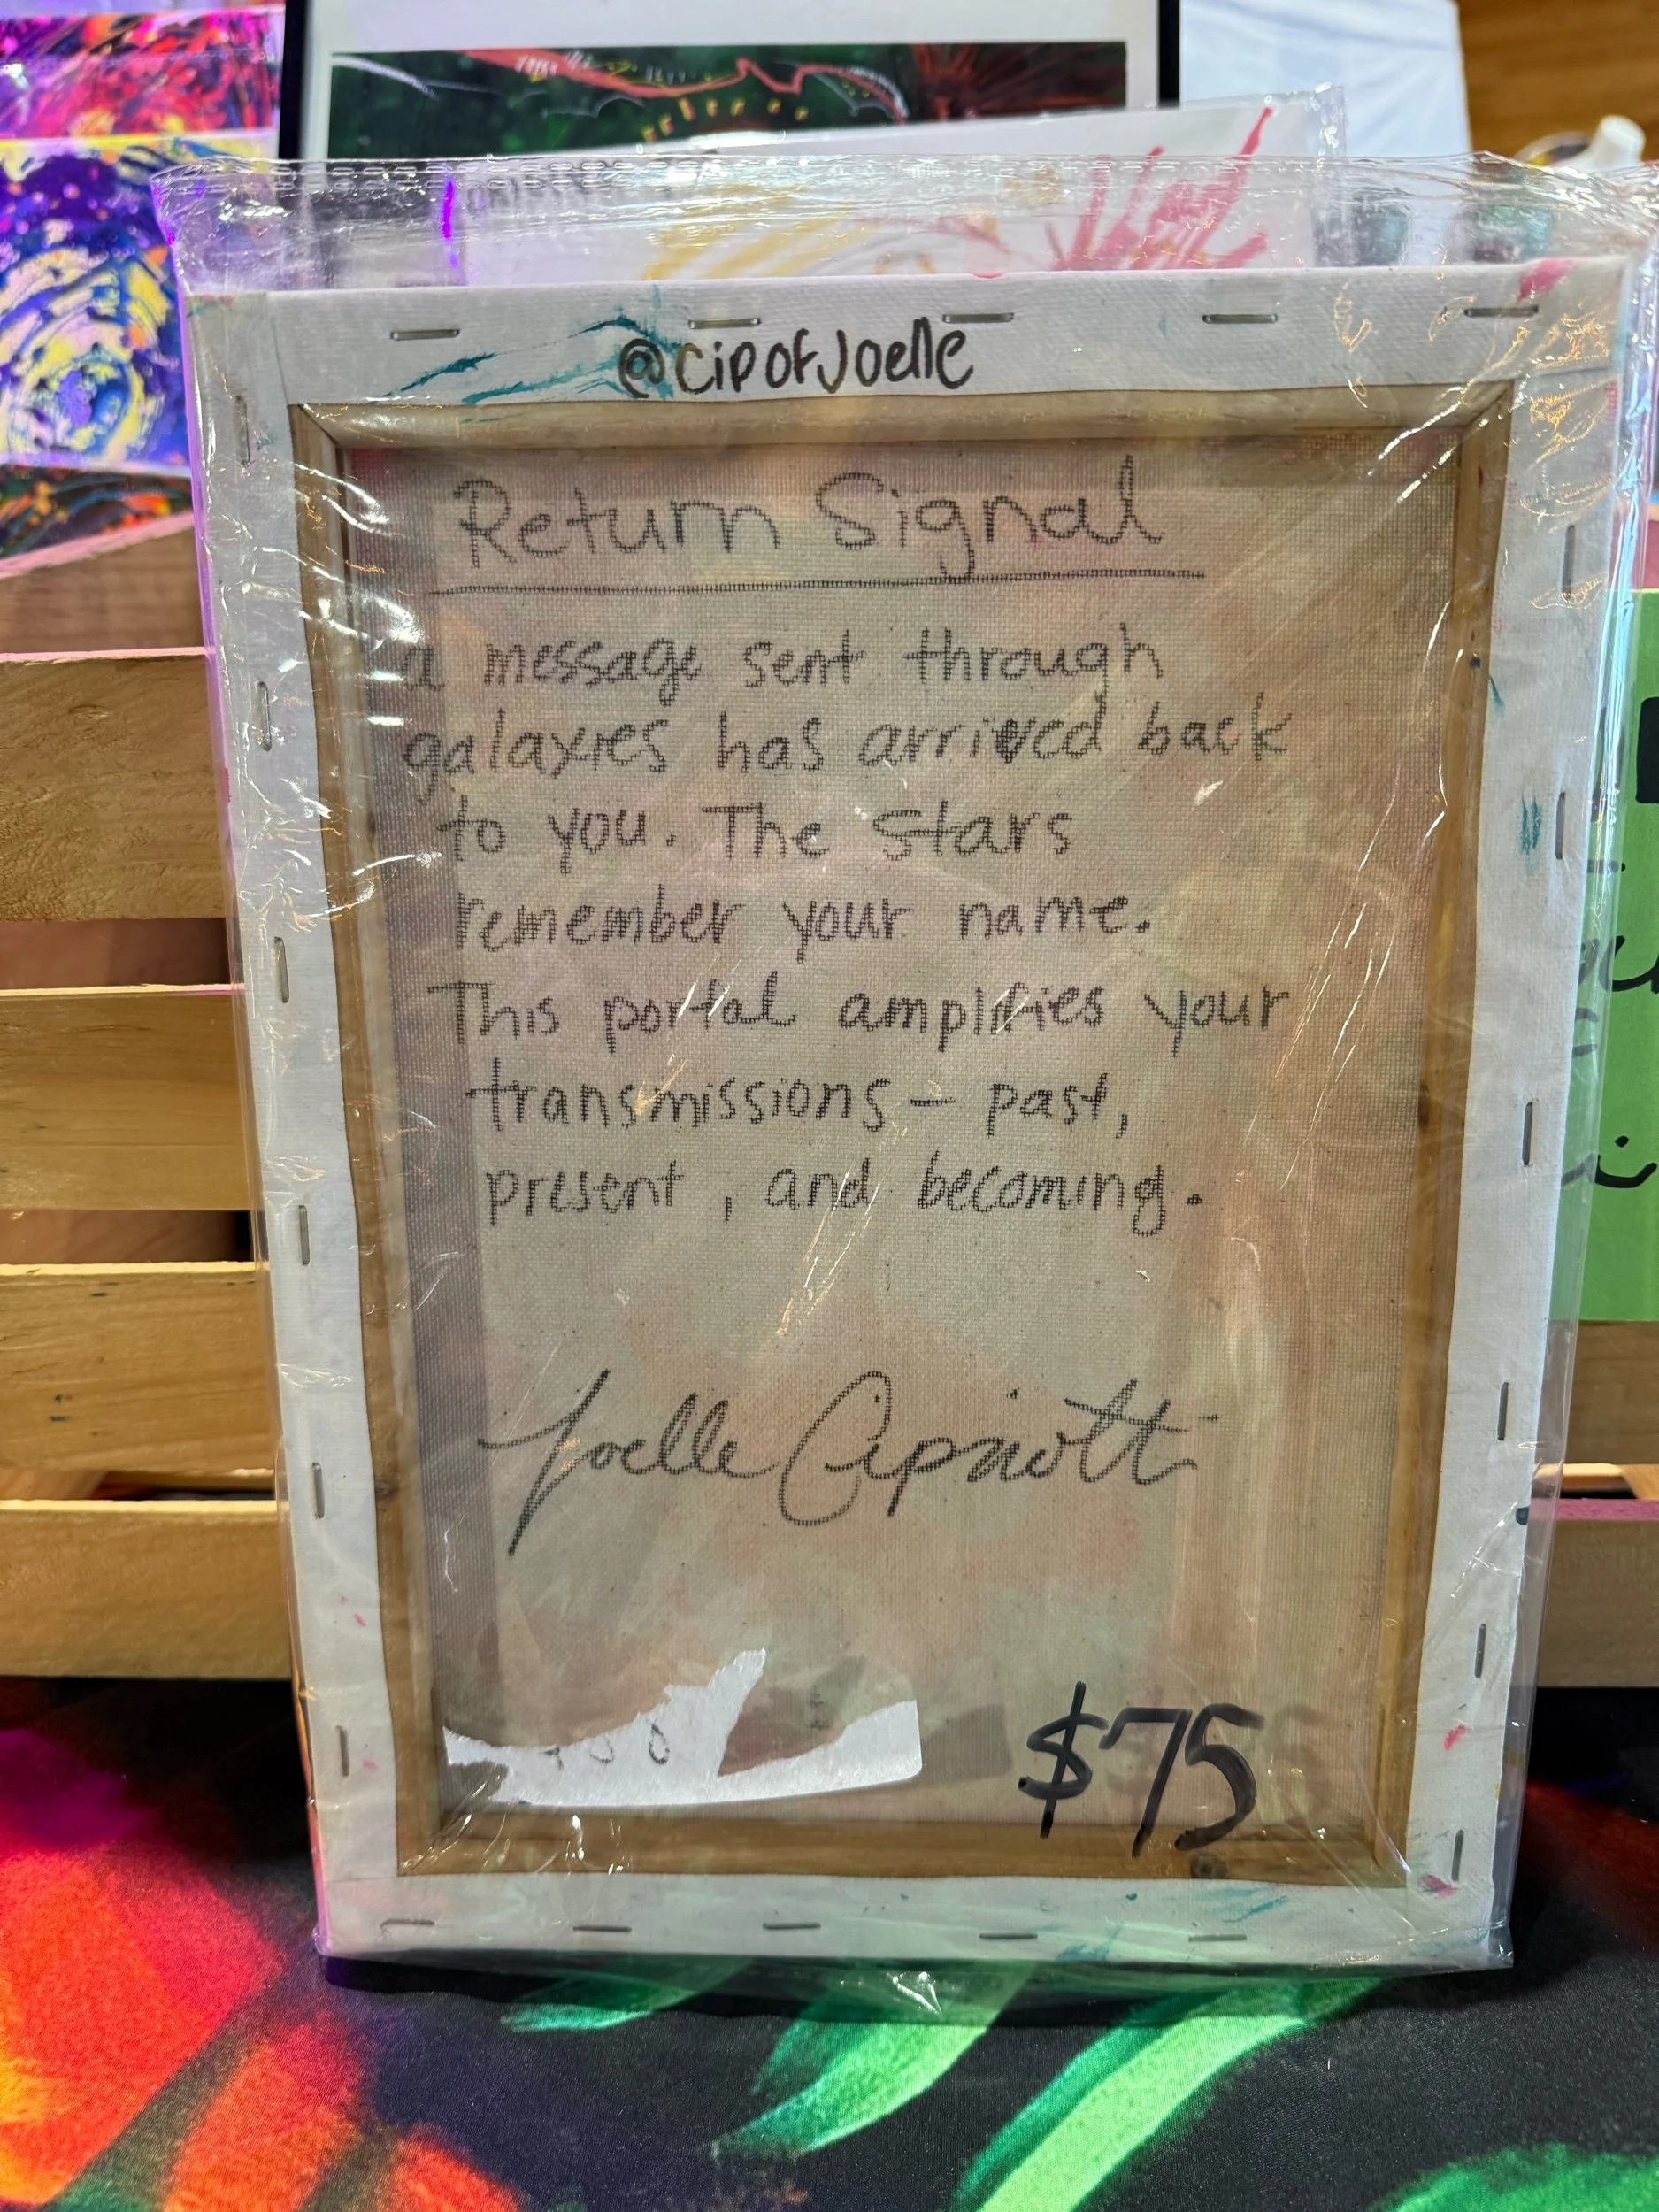 @cipofJoelle
Return Signal
a message sent through
galaxies has arrived back
to you. The stars
remember your name.
This portal amplifies your
transmissions — past,
present, and becoming.
Joelle Cipriotti
$75